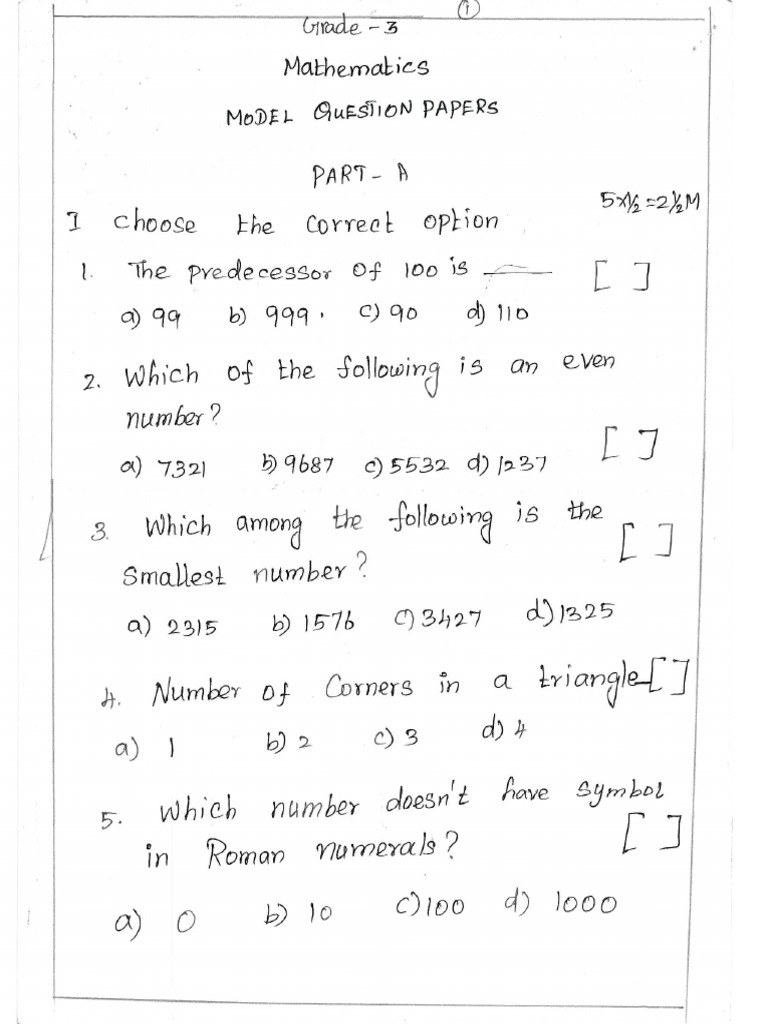 1
Grade - 3
Mathematics
MODEL QUESTION PAPERS
PART - A
5×½=2½M
I choose the correct option
1. The predecessor of 100 is ____ [ ]
a) 99 b) 999 . c) 90 d) 110
2. Which of the following is an even
number?
[ ]
a) 7321 b) 9687 c) 5532 d) 1237
3. Which among the following is the
[ ]
Smallest number?
a) 2315 b) 1576 c) 3427 d) 1325
4. Number of Corners in a triangle [ ]
a) 1 b) 2 c) 3 d) 4
5. Which number doesn't have symbol
in Roman numerals? [ ]
a) 0 b) 10 c) 100 d) 1000